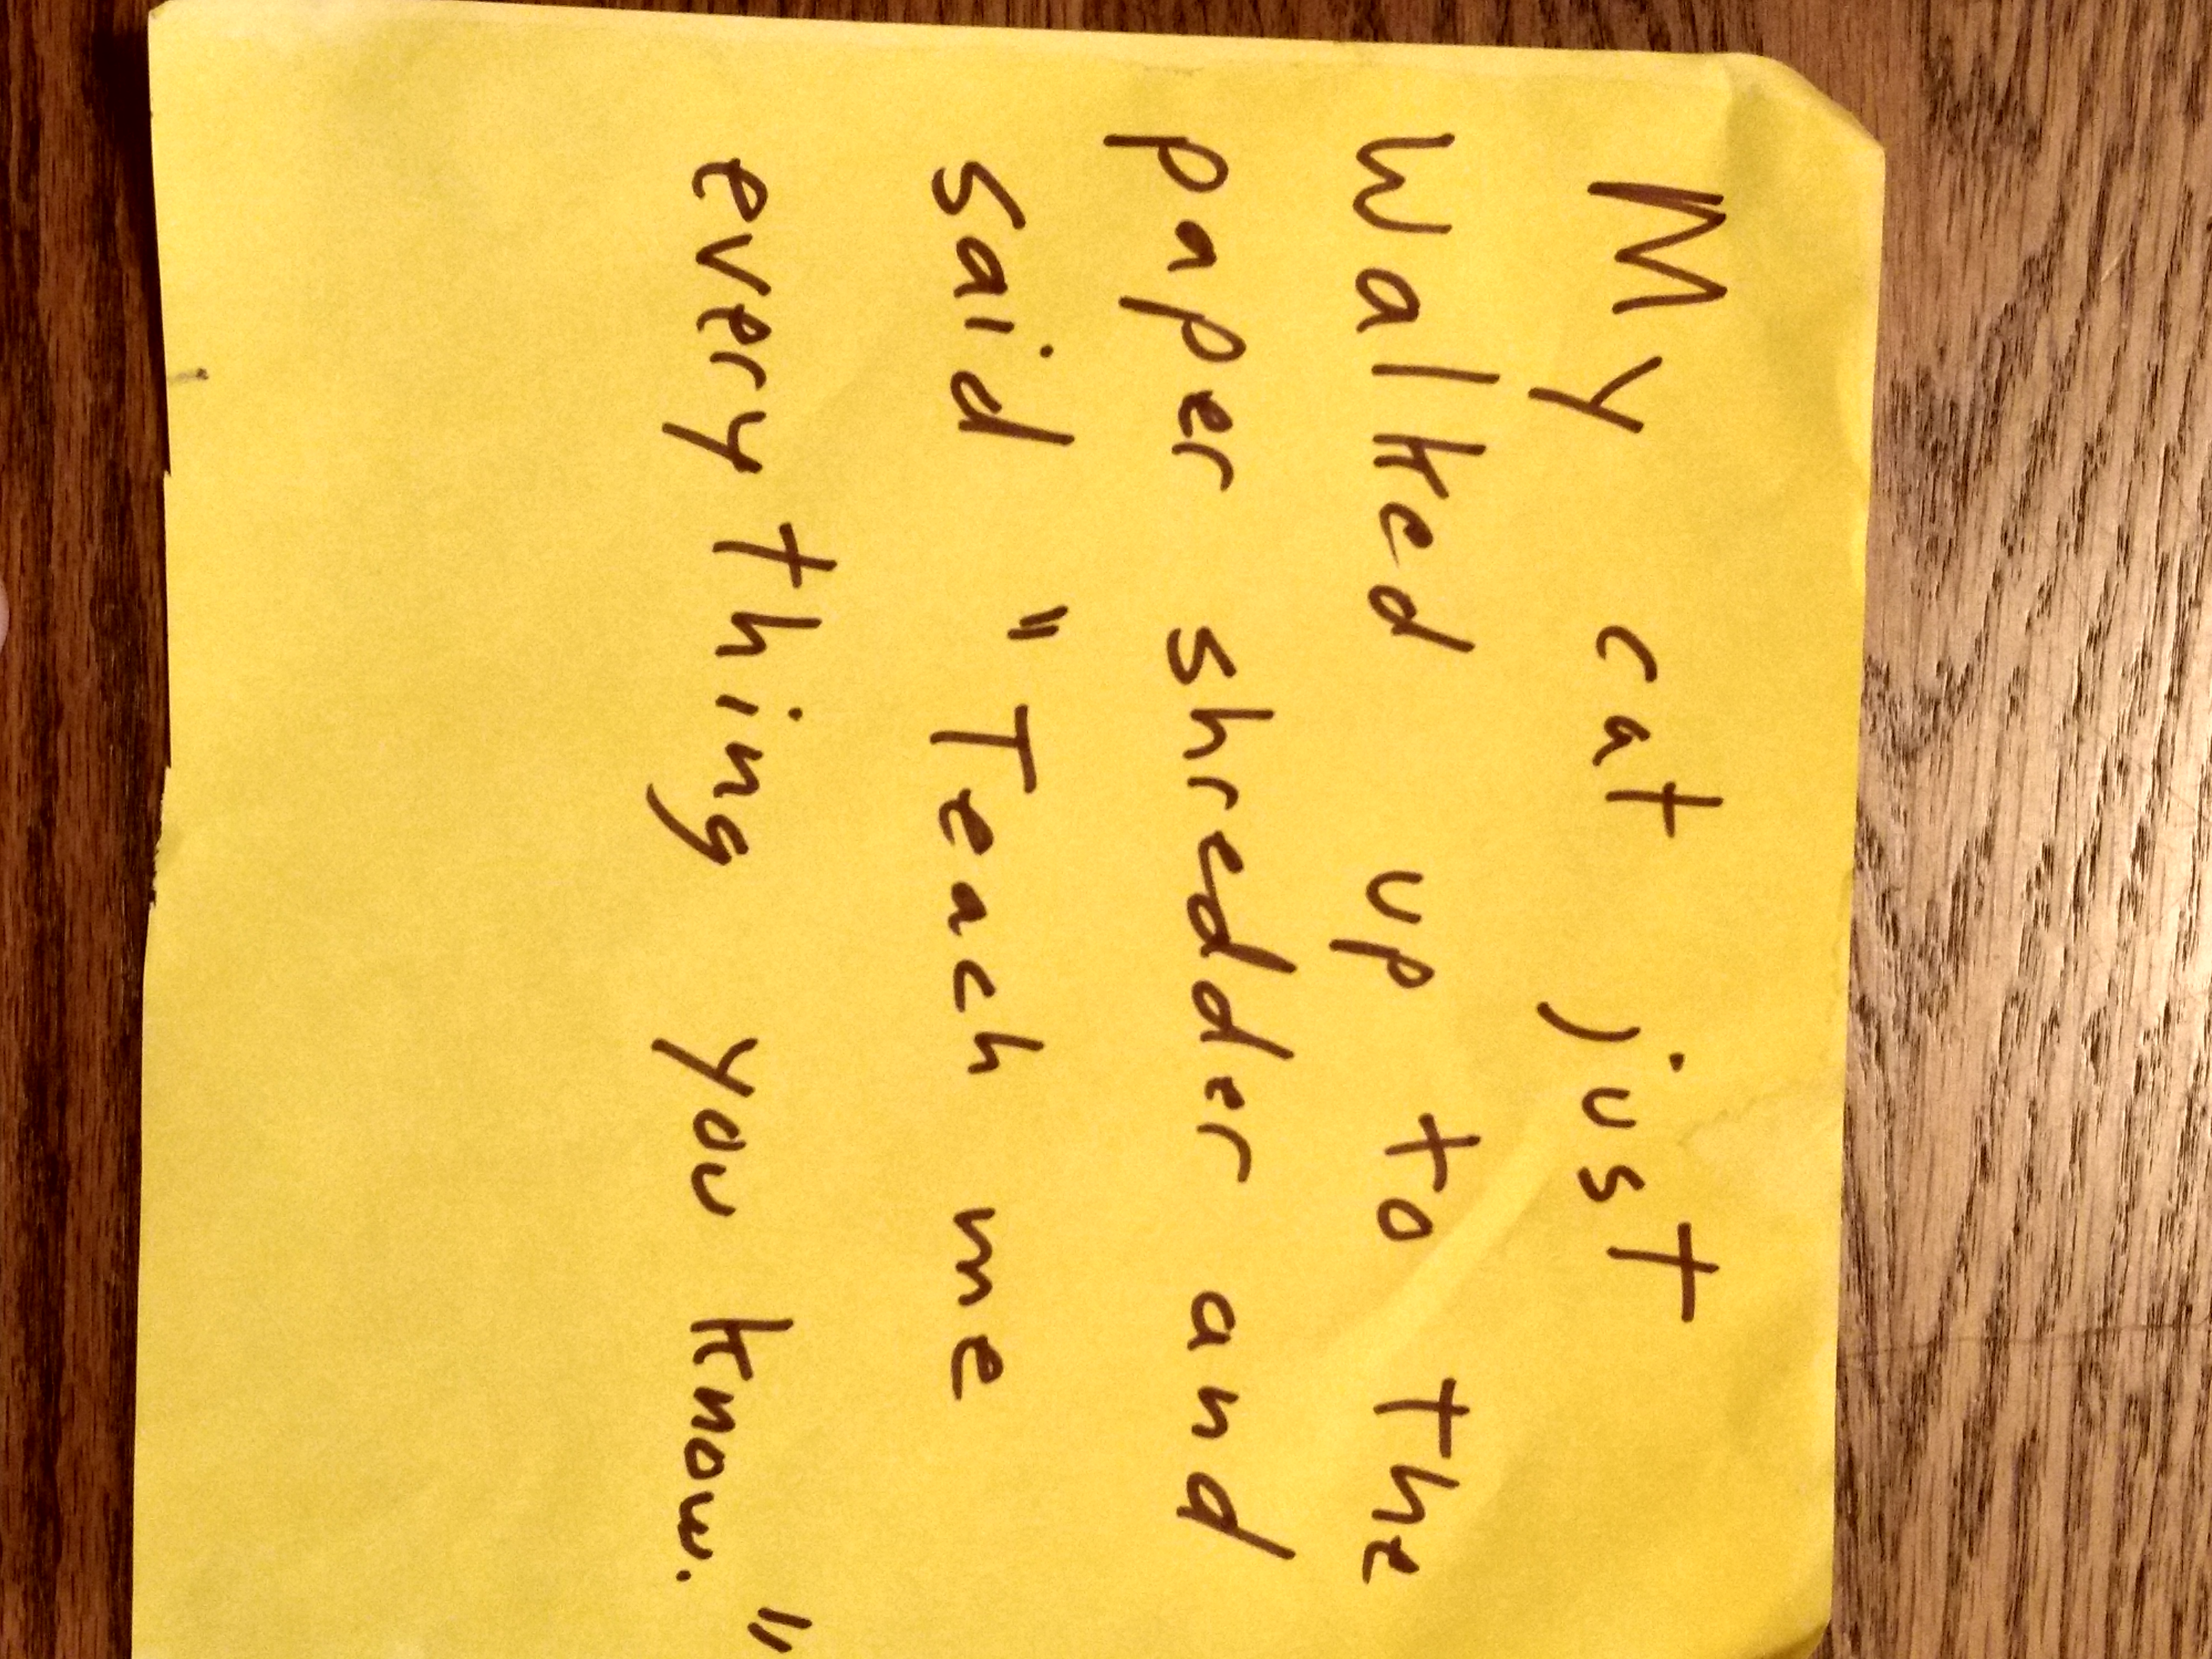 My cat just
walked up to the
paper shredder and
said "Teach me
everything you know."